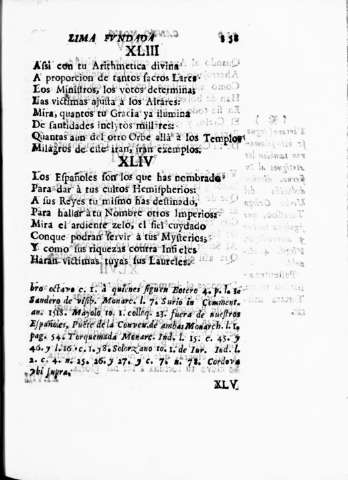 LIMA FVNDADA
XLIII
Assi con tu Arithmetica divina
A proporcion de tantos sacros Lares
Los Ministros, los votos determinas
Las victimas ajusta à los Altares:
Mira, quantos tu Gracia ya ilumina
De santidades inclytos millares:
Quantas aun del otro Orbe allà à los Templos
Milagros de este iran, iran exemplos.
XLIV
Los Españoles son los que has nombrado
Para dar à tus cultos Hemispherios:
A sus Reyes tu mismo has destinado,
Para hallar à tu Nombre otros Imperios:
Mira el ardiente zelo, el fiel cuydado
Conque podran servir à tus Mysterios;
Y como sus riquezas contra Infieles
Haràn victimas tuyas sus Laureles.
bro octavo c. 1. à quines siguen Botero 4. p. l. 1.
Sandero de visib. Monarc. l. 7. Surio in Comment.
an. 1518. Mayolo to. 1. colloq. 23. fuera de nuestros
Españoles, Puète de la Conven. de ambas Monarch. l. 1.
pag. 54. Torquemada Monarc. Ind. l. 15. c. 43. y
46. y l. 16. c. 1. y 8. Solorzano to. 1. de Iur. Ind. l.
2. c. 4. n. 25. 26. y 27. y c. 7. n. 78. Cordova
vbi supra.
XLV.